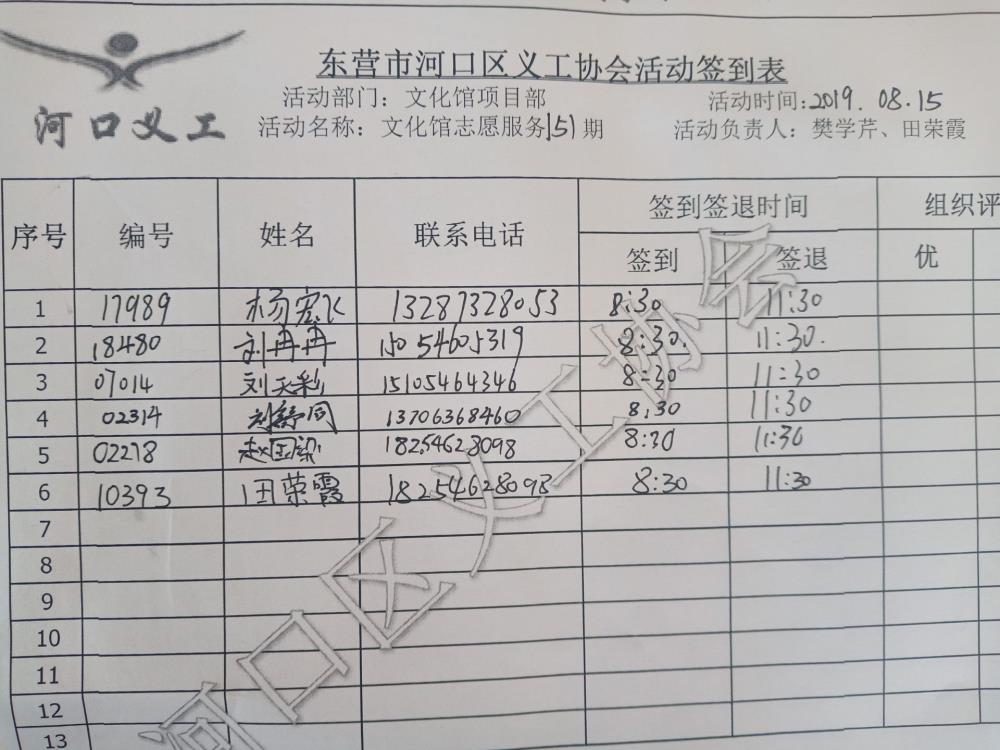 东营市河口区义工协会活动签到表
河口义工
活动部门：文化馆项目部 活动时间:2019.08.15
活动名称：文化馆志愿服务151期 活动负责人：樊学芹、田荣霞
序号 编号 姓名 联系电话 签到签退时间 组织评
签到 签退 优
1 17989 杨宏飞 13287328053 8:30 11:30
2 18480 刘冉冉 15054605319 8:30. 11:30.
3 07014 刘天彩 15105464346 8:30 11:30
4 02314 刘舒同 13706368460 8:30 11:30
5 02278 赵国梁 18254628098 8:30 11:30
6 10393 田荣霞 18254628098 8:30 11:30
7
8
9
10
11
12
13
河口区义工协会